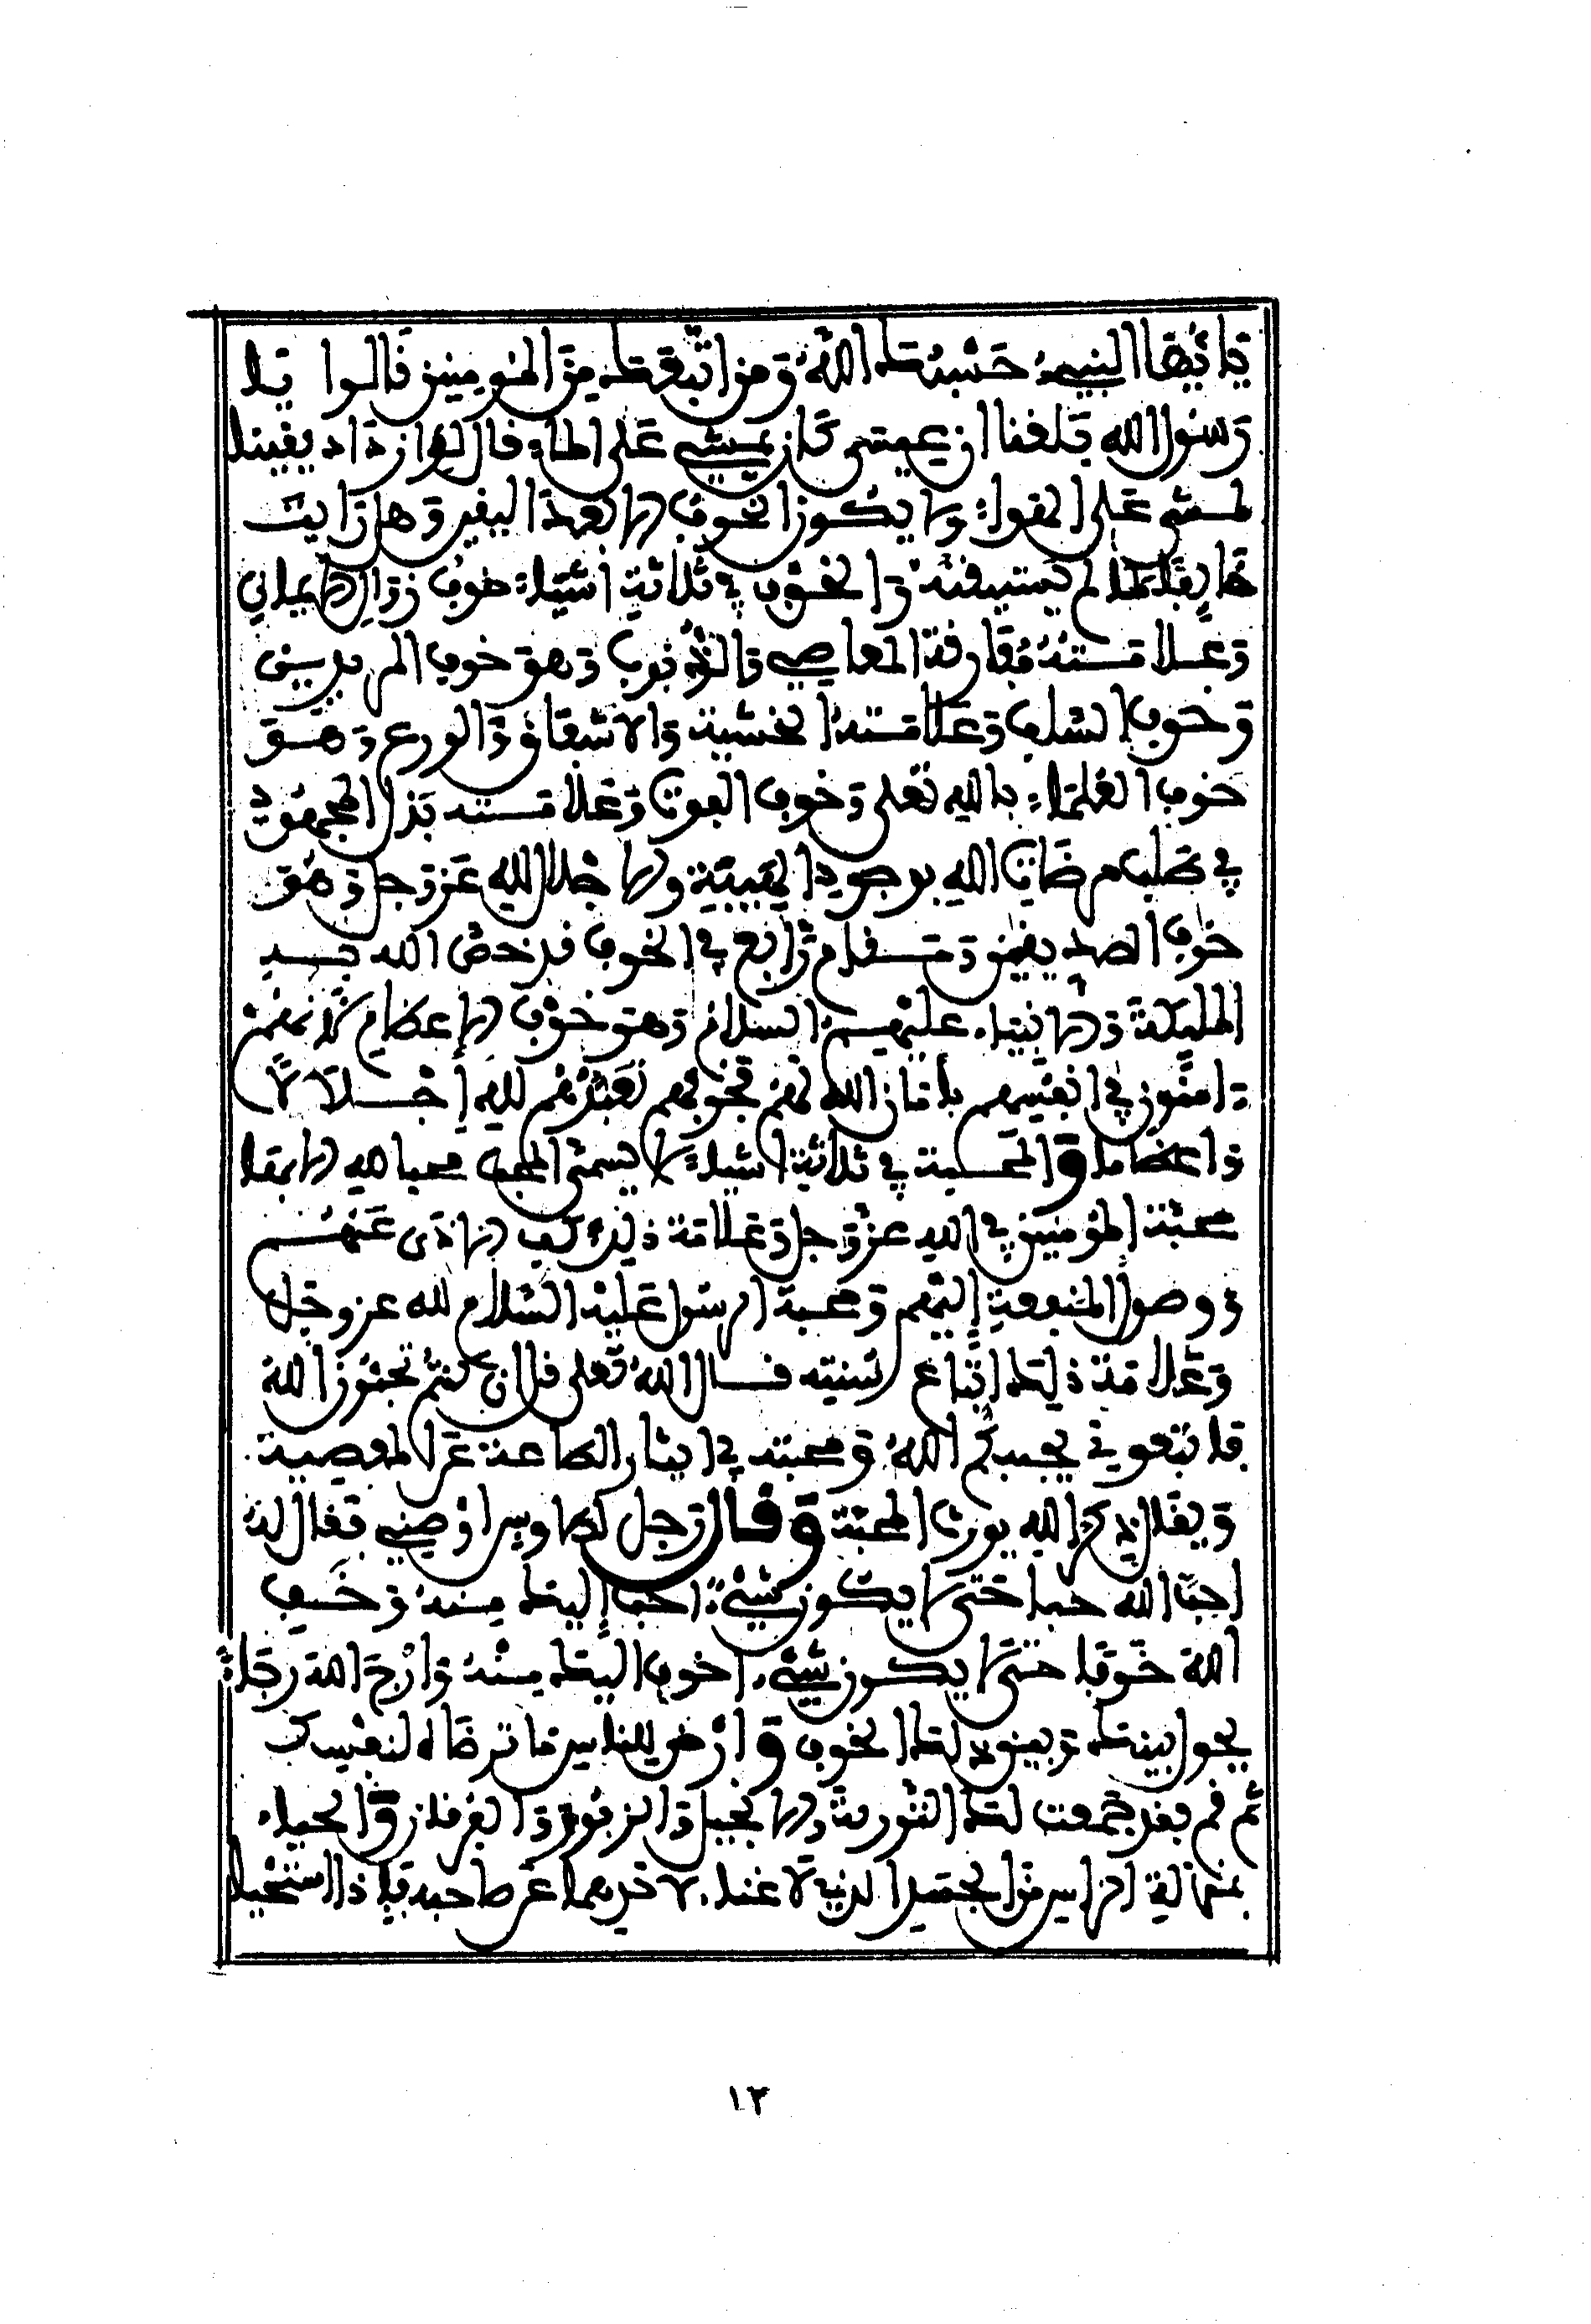 يَا أَيُّهَا النَّبِيءُ حَسْبُكَ اللَّهُ وَمَنِ اتَّبَعَكَ مِنَ الْمُومِنِينَ قَالُوا يَا
رَسُولَ الله بَلَغَنَا أن عِيسَى كَانَ يَمْشِي عَلَى الماءِ فقال لو ازداد يقينا
لمشى عَلَى الهواءِ ولا يكون الخوفُ إلا بعد اليقين وَهل رَايتَ
خَايفًا لما لم يَستيقنه وَالخَوْف في ثلاثةِ أشيَاء خوف زوال الايماني
وَعلامَتُهُ مُفَارقة المعاصِي وَالذُّنوب وَهوَ خوف المريدين
وَخوف السلب وَعَلامَتهُ الخشية وَالاشفاق وَالورع وَهوَ
خوف العُلمَاءِ بالله تَعلى وَخوف الفوت وَعَلامَته بَذل المجهُود
في طلب مرضَات الله بوجود الهيبَة والاجلال لله عَز وَجل وَهُوَ
خوف الصديقين وَمَقام رَابع في الخوف قد خصّ الله به
المليكة وَالانبيَاء عليْهم السلام وَهوَ خَوْف الإعظام لأنهُمْ
ءامنُون في أنفُسِهم بأمَان الله لهُمْ فخوفهم تَعَبُّدُهُم للهِ إِجْلَالاً
وَاعظاما وَالمحبة في ثلاثة أشياء لا يسمى المحب محبا لله إلا بها
محبَّة المؤمنين في الله عزّ وَجل وَعَلامَة ذلك كف الأذَى عَنهُم
ووصول المنفعةِ إليْهم وَمحبة الرسُول عَليْه السَّلام لله عز وجَل
وَعَلامَة ذلك اتباع سُنته قال اللهُ تَعلى قل إن كنتم تحبُّون اللهَ
فاتبعوني يحببكم اللهُ وَمحبته في ايثار الطاعة عَن المعصية
وَيقال ذكر الله يورث المحبَّة وَقال رَجل لطاويس أوْصِني فقال لهُ
أحبّ الله حبا حَتى لا يكون شيْء أحب إليك منهُ وَخَف
الله خَوفا حتى لا يكون شيْء أخوف إليك مِنْهُ وَارْجُ الله رجَاءً
يحول بينك وَبين ذلك الخوف وَارْض للناس مَا ترضَاه لنفسك
ثم قم فقد جُمعت لك التَّورية والانجيل وَالزبُور وَالفرقان وَالحياء
بمنزلة الراس من الجسد الذي لا غناء لأحدهما عن صاحبه فإذا استحيا
١٢